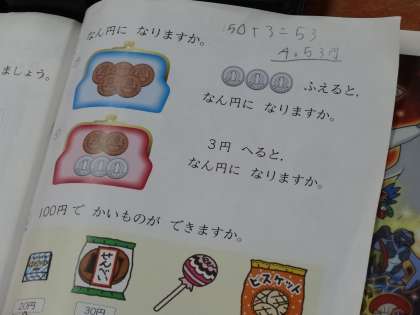 なん円に なりますか。
50+3=53
A. 53円
ましょう。
ふえると,
なん円に なりますか。
3円 へると,
なん円に なりますか。
100円で かいものが できますか。
せんべい
ビスケット
20円
30円